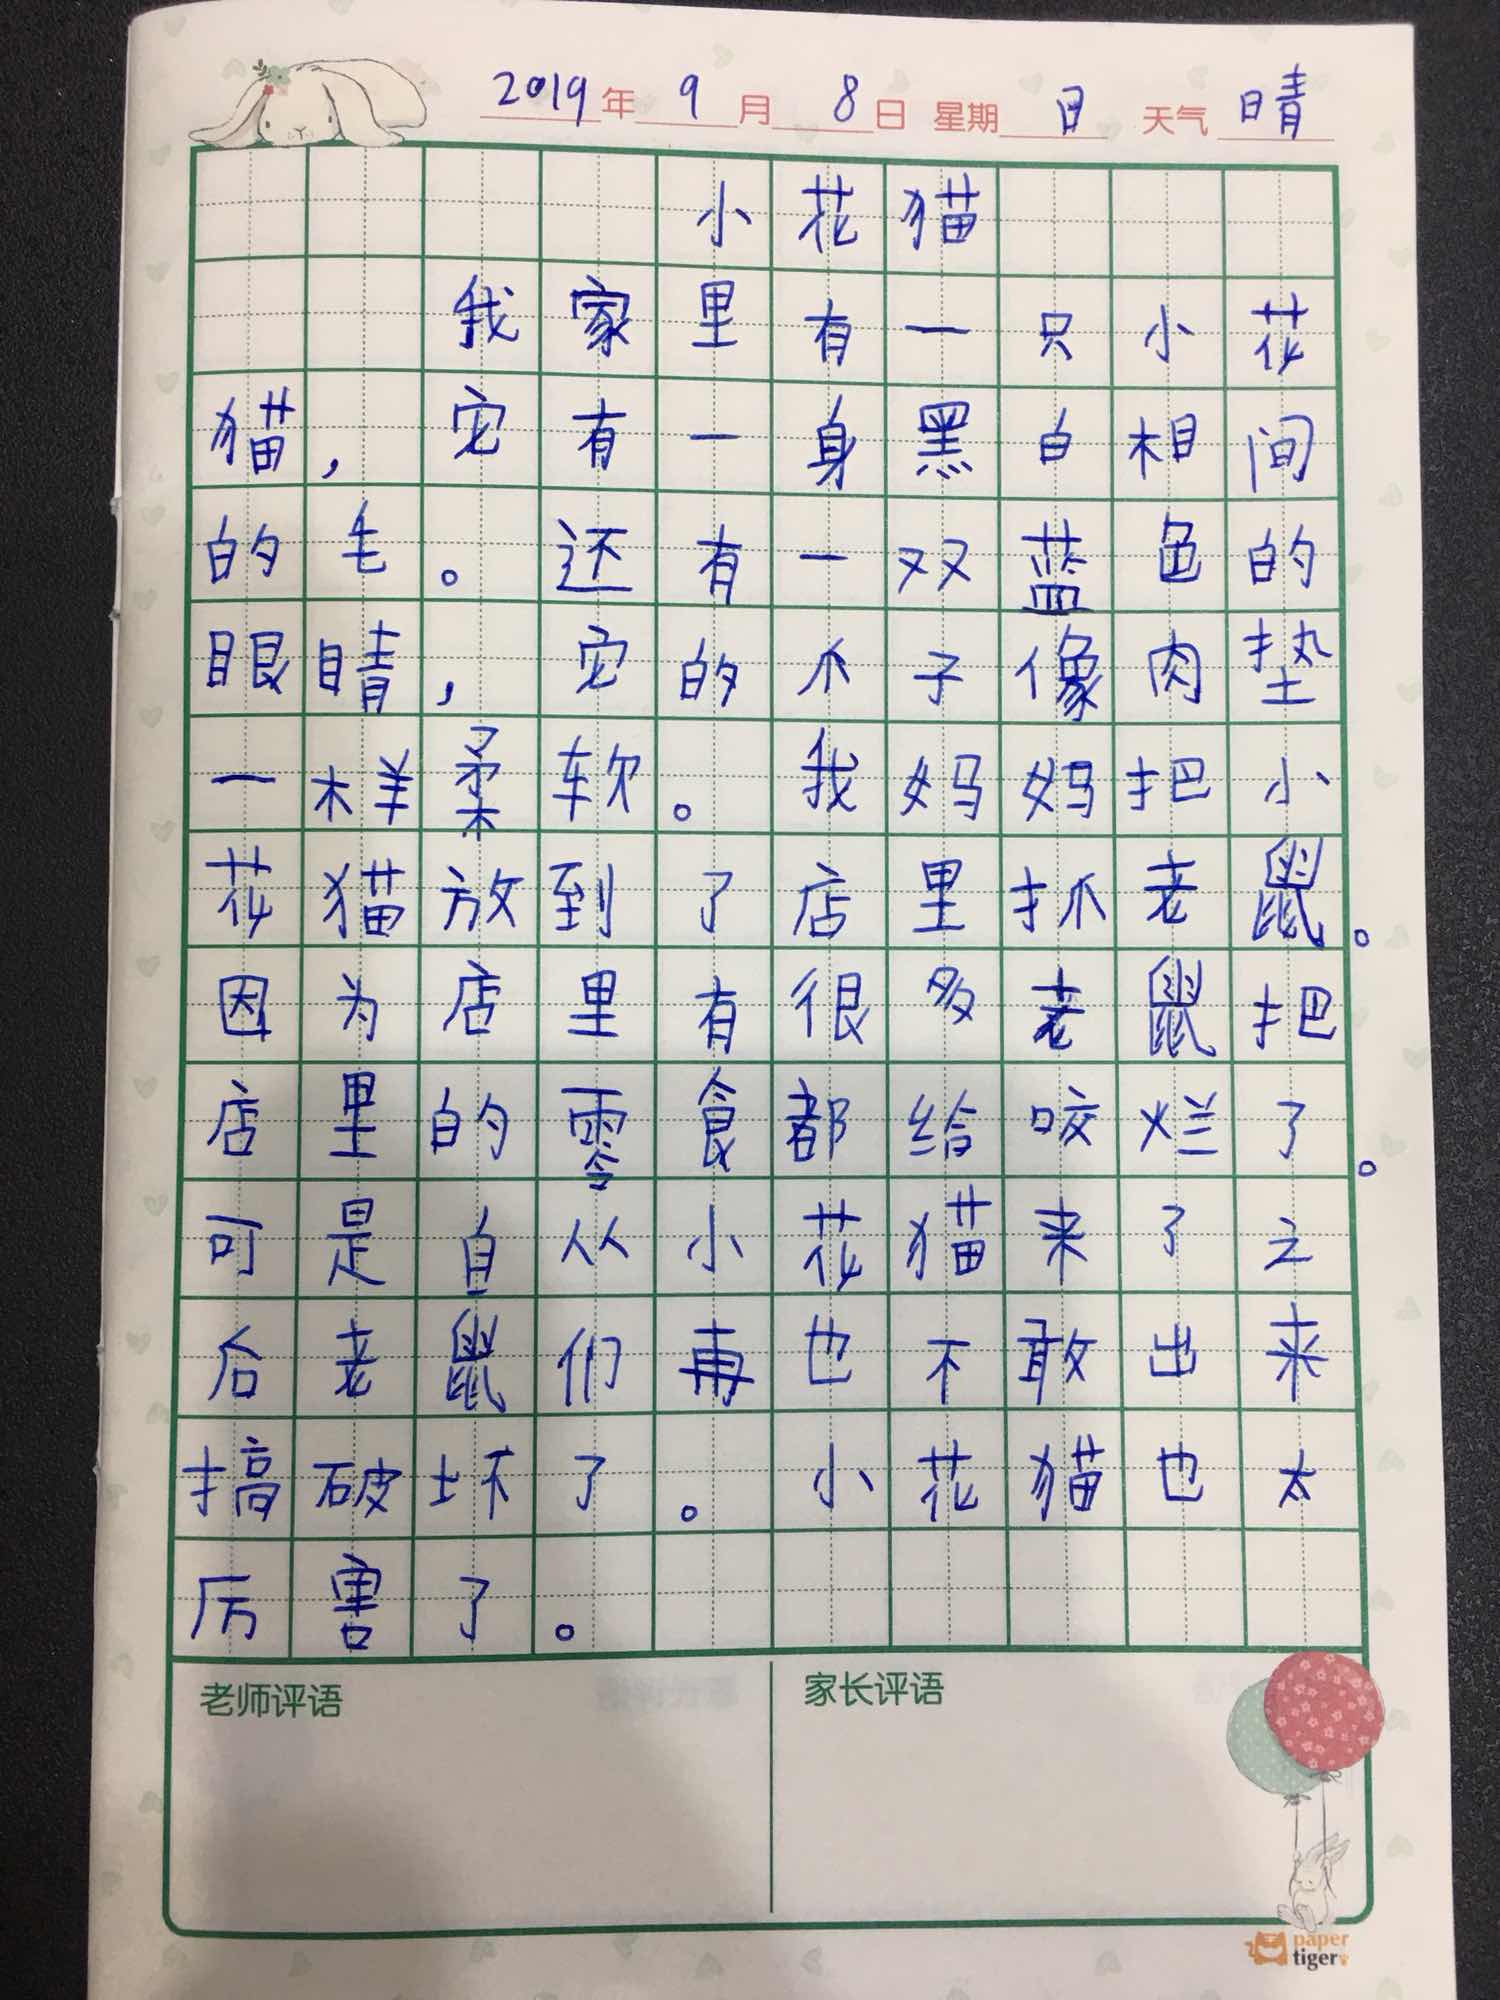 2019年 9月 8日 星期日 天气 晴
小花猫
我家里有一只小花
猫，它有一身黑白相间
的毛。还有一双蓝色的
眼睛，它的爪子像肉垫
一样柔软。我妈妈把小
花猫放到了店里抓老鼠。
因为店里有很多老鼠把
店里的零食都给咬烂了。
可是自从小花猫来了之
后老鼠们再也不敢出来
搞破坏了。小花猫也太
厉害了。
老师评语 家长评语
paper
tiger